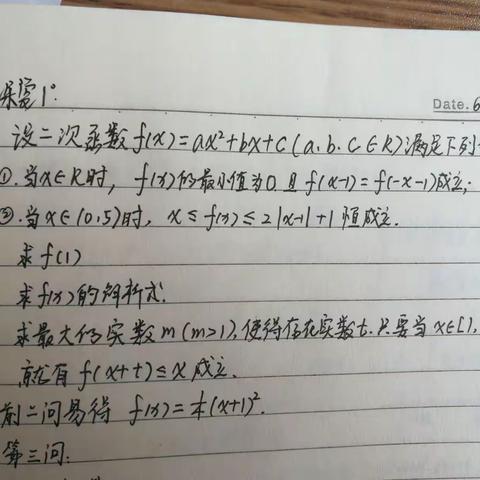 Date. 6
探究1°:
设二次函数f(x)=ax²+bx+c(a、b、c∈R)满足下列
①.当x∈R时, f(x)的最小值为0且 f(x-1)=f(-x-1)成立;
②.当x∈(0,5)时, x≤f(x)≤2|x-1|+1恒成立.
求f(1)
求f(x)的解析式.
求最大的实数m(m>1),使得存在实数t.只要当x∈[1,
就有f(x+t)≤x成立.
前二问易得 f(x)=¼(x+1)².
第三问: